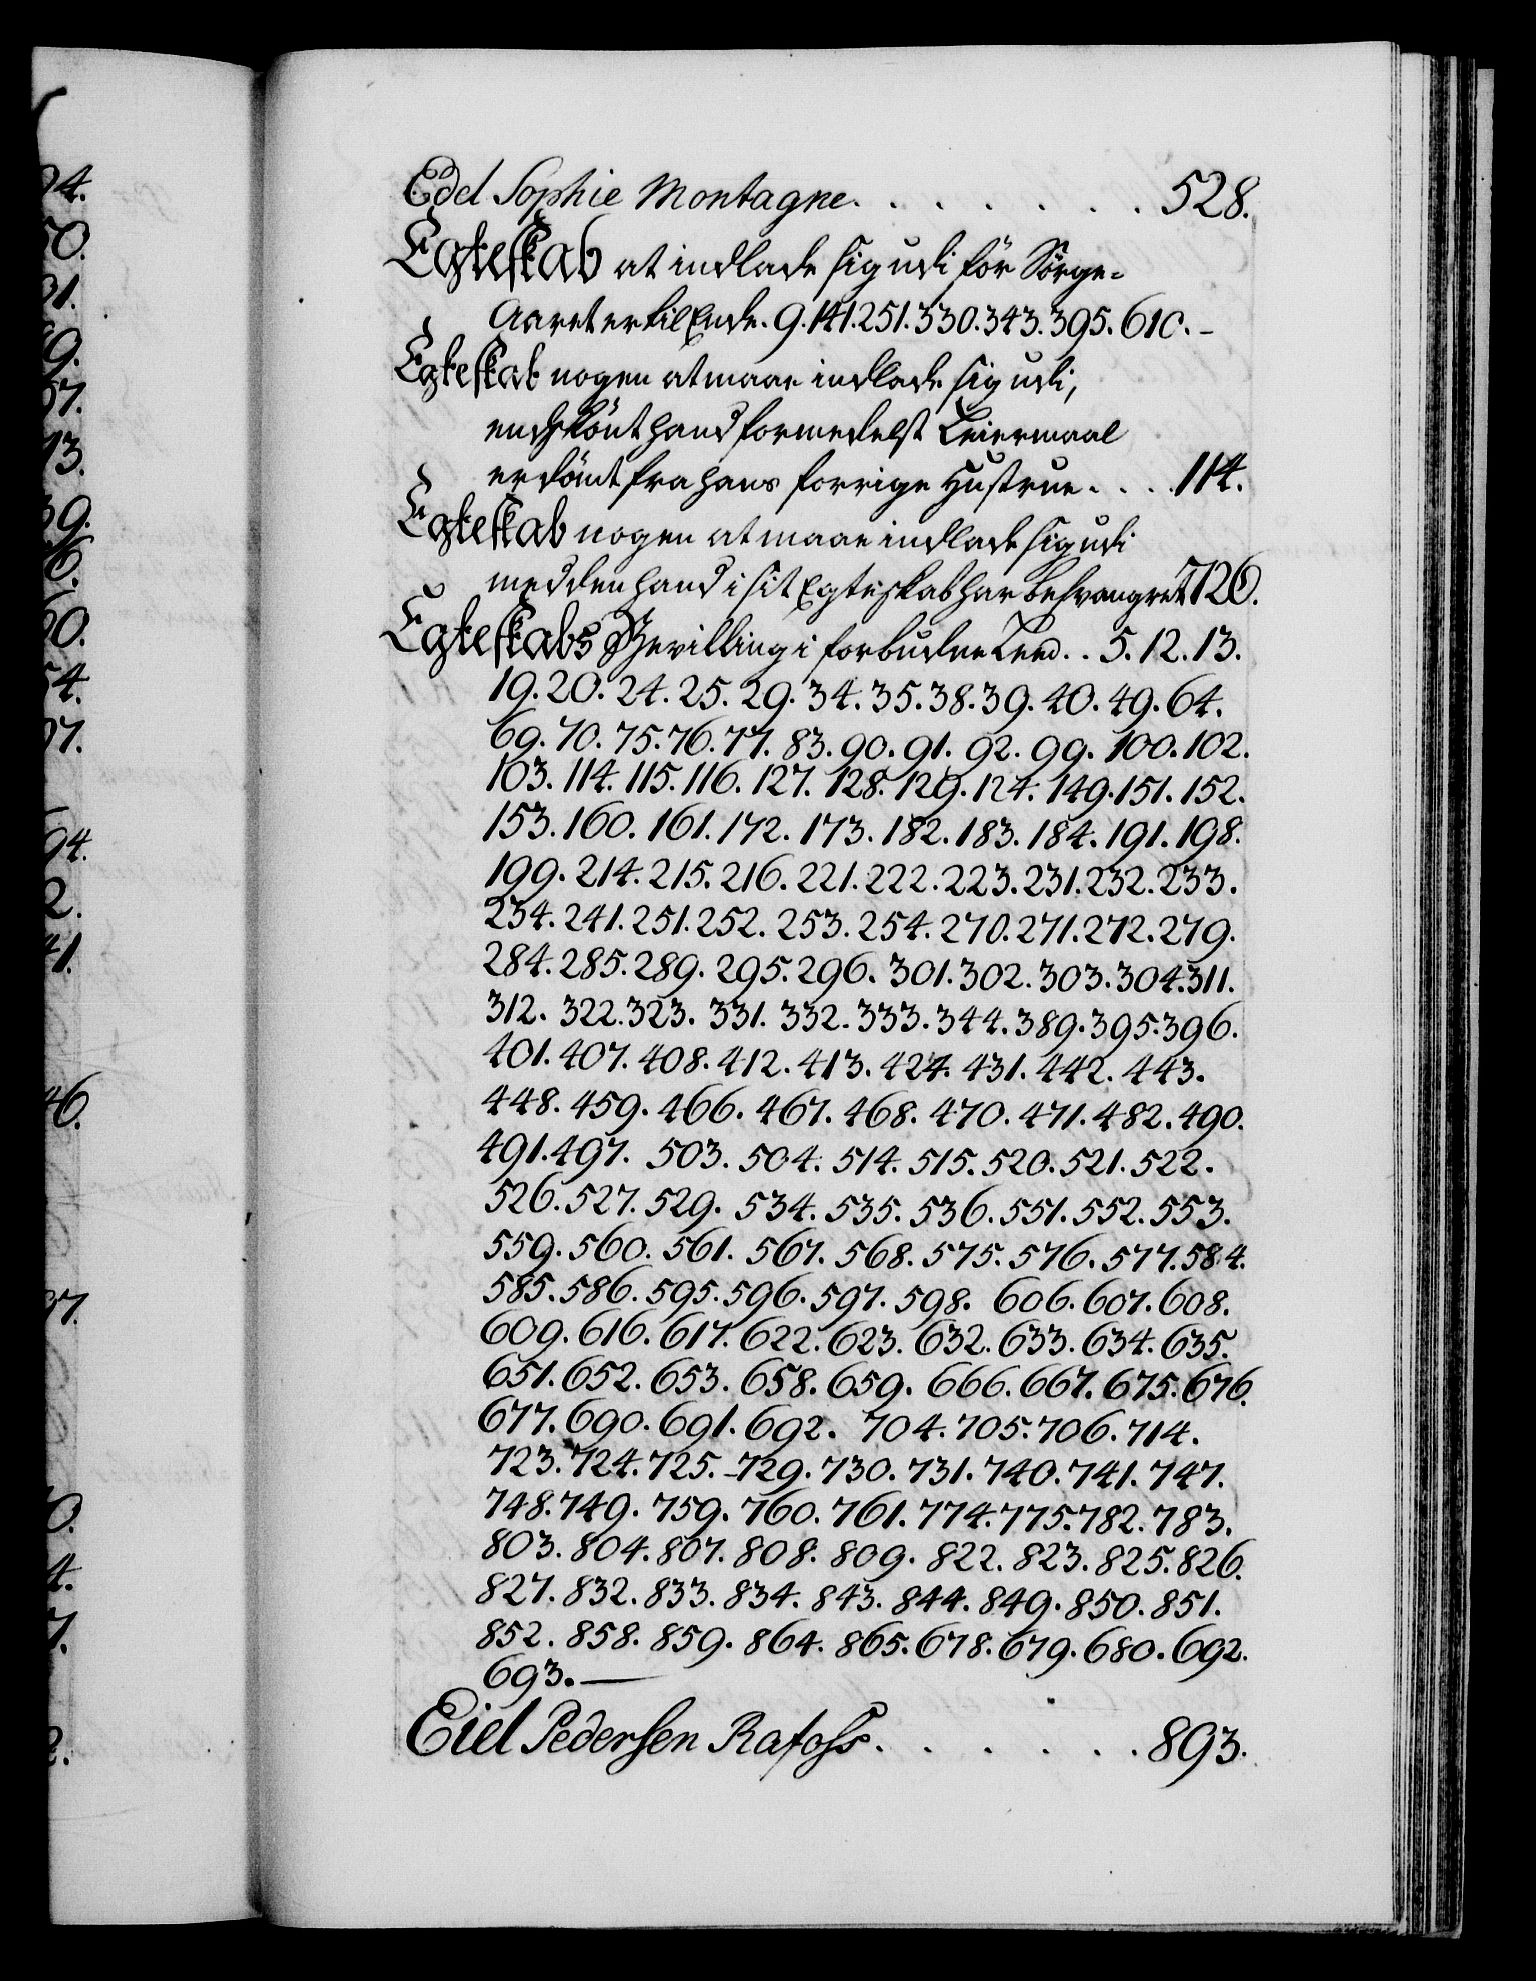 Edel Sophie Montagne. . . . . . . . 528.
Egteskab at indlade sig udi för Sörge-
Aaret er til Ende. 9. 141. 251. 330. 343. 395. 610. -
Egteskab nogen at maae indlade sig udi,
endskönt hand formedelst Leiermaal
er dömt fra hans forrige Hustrue. . . . 114.
Egteskab nogen at maae indlade sig udi
med den hand i sit Egteskab har besvangret 726.
Egteskabs Bevilling i forbudne Leed. . 5. 12. 13.
19. 20. 24. 25. 29. 34. 35. 38. 39. 40. 49. 64.
69. 70. 75. 76. 77. 83. 90. 91. 92. 99. 100. 102.
103. 114. 115. 116. 127. 128. 129. 124. 149. 151. 152.
153. 160. 161. 172. 173. 182. 183. 184. 191. 198.
199. 214. 215. 216. 221. 222. 223. 231. 232. 233.
234. 241. 251. 252. 253. 254. 270. 271. 272. 279.
284. 285. 289. 295. 296. 301. 302. 303. 304. 311.
312. 322. 323. 331. 332. 333. 344. 389. 395. 396.
401. 407. 408. 412. 413. 424. 431. 442. 443.
448. 459. 466. 467. 468. 470. 471. 482. 490.
491. 497. 503. 504. 514. 515. 520. 521. 522.
526. 527. 529. 534. 535. 536. 551. 552. 553.
559. 560. 561. 567. 568. 575. 576. 577. 584.
585. 586. 595. 596. 597. 598. 606. 607. 608.
609. 616. 617. 622. 623. 632. 633. 634. 635.
651. 652. 653. 658. 659. 666. 667. 675. 676.
677. 690. 691. 692. 704. 705. 706. 714.
723. 724. 725. 729. 730. 731. 740. 741. 747.
748. 749. 759. 760. 761. 774. 775. 782. 783.
803. 804. 807. 808. 809. 822. 823. 825. 826.
827. 832. 833. 834. 843. 844. 849. 850. 851.
852. 858. 859. 864. 865. 678. 679. 680. 692.
693. —
Eiel Pedersen Rafoss. . . . . . . 893.